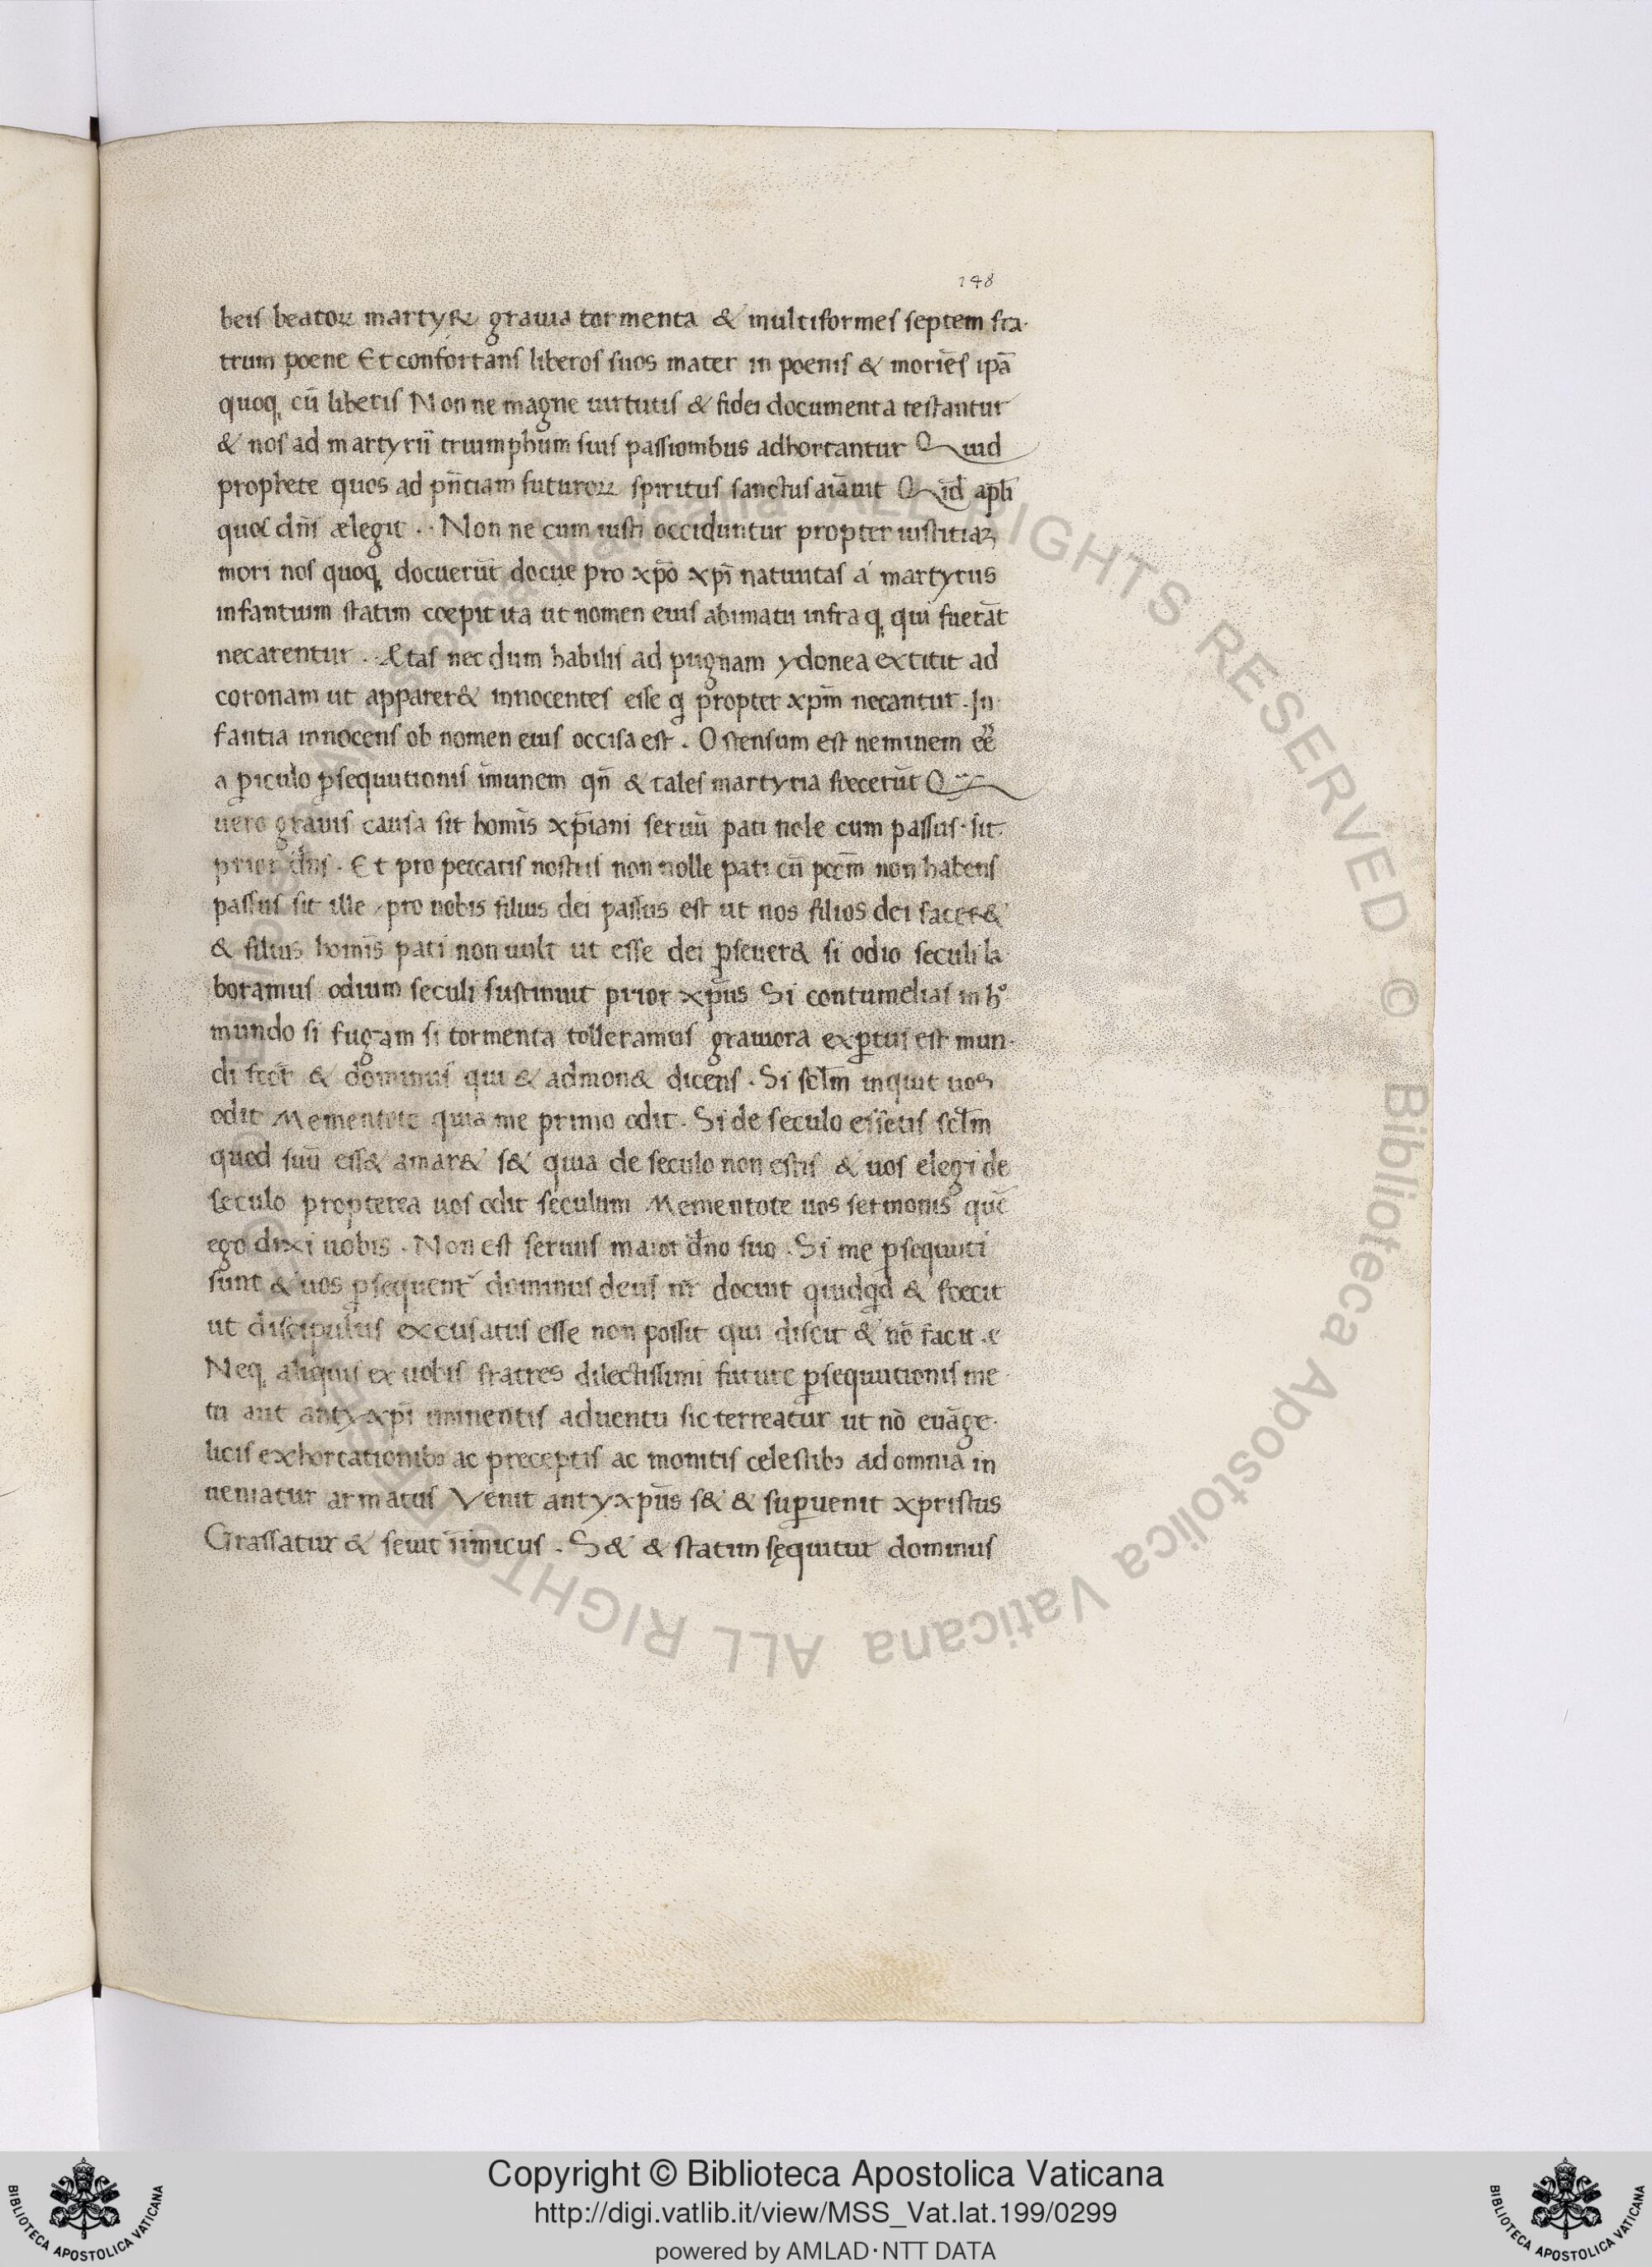 148
beis beatoꝝ martyꝝ grauia tormenta & multiformes septem fra-
trum poene Et confortans liberos suos mater in poenis & moriēs ipā
quoq; cū liberis Non ne magne uirtutis & fidei documenta testantur
& nos ad martyrii triumphum suis passionibus adhortantur Quid
prophete quos ad pn̄tiam futuroꝝ spiritus sanctus aiāuit Qid apl̄i
quos dn̄i ælegit . . Non ne cum iusti occiduntur propter iustitiaꝫ
mori nos quoq; docuerūt docue pro xp̄o xp̄i natiuitas á martyriis
infantium statim coepit ita ut nomen eius abimatu infra q; qui fuerāt
necarentur . Ætas nec dum habilis ad pugnam ydonea extitit ad
coronam ut apparer& innocentes esse q propter xp̄m necantur . In
fantia innocens ob nomen eius occisa est . Ostensum est neminem eē
a ꝑiculo ꝑsequutionis īmunem qn̄ & tales martyria foecerūt Q
uero grauis causa sit homīs xp̄iani seruū pati nole cum passus sit
prior dn̄s . Et pro peccatis nostris non nolle pati cū pccm̄ non habens
passus sit ille pro nobis filius dei passus est ut nos filios dei facer&
& filius homīs pati non uult ut esse dei ꝑseuer& si odio seculi la
boramus odium seculi sustinuit prior xp̄us Si contumelias in hͦ
mundo si fugam si tormenta tolleramus grauiora exꝑtus est mun-
di fctōr & dominus qui & admon& dicens . Si scl̄m inquit uos
odit Mementote quia me primo odit . Si de seculo essetis scl̄m
quod suū ess& amar& s& quia de seculo non estis & uos elegi de
seculo propterea uos odit seculum Mementote uos sermonis quē
ego dixi uobis . Non est seruus maior dn̄o suo . Si me ꝑsequuti
sunt & uos ꝑsequent̄ dominus deus nr̄ docuit quidqd & foecit
ut discipulus excusatus esse non possit qui discit & nō facit .e
Neq; aliquis ex uobis fratres dilectissimi future ꝑsequutionis me
tu aut antyxp̄i iminentis aduentu sic terreatur ut nō euāge-
licis exhortationibꝫ ac preceptis ac monitis celestibꝫ ad omnia in
ueniatur armatus Venit antyxp̄us s& & suꝑuenit xpristus
Grassatur & seuit inimicus . S& & statim sequitur dominus
Copyright © Biblioteca Apostolica Vaticana
http://digi.vatlib.it/view/MSS_Vat.lat.199/0299
powered by AMLAD·NTT DATA